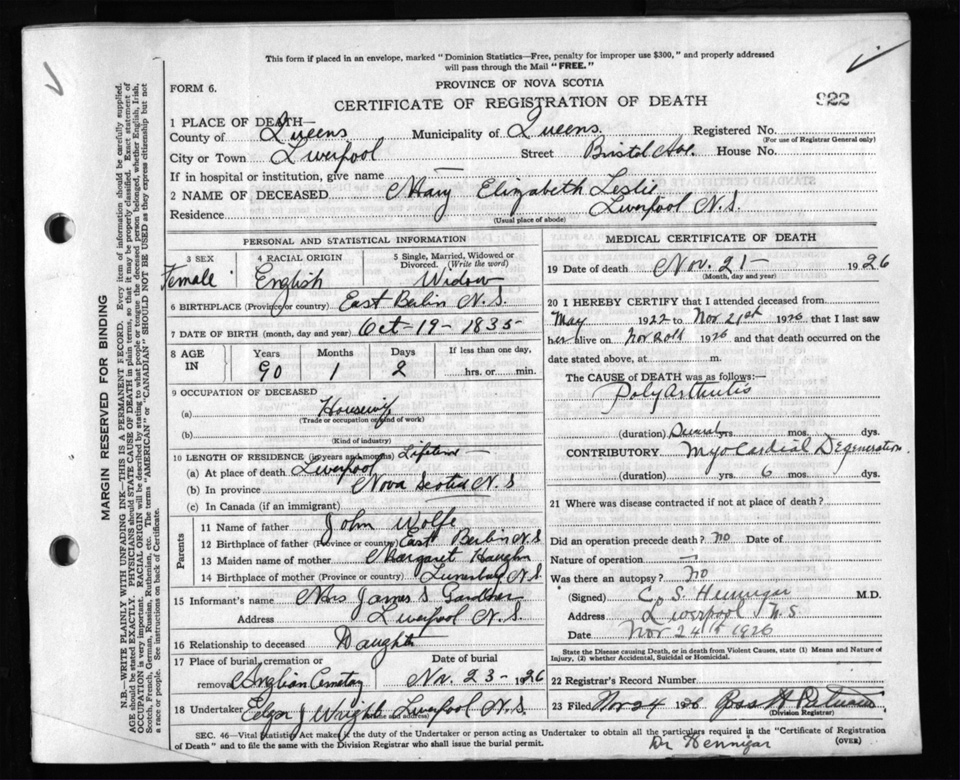 This form if placed in an envelope, marked "Dominion Statistics—Free, penalty for improper use $300," and properly addressed
will pass through the Mail "FREE."
PROVINCE OF NOVA SCOTIA
FORM 6.
CERTIFICATE OF REGISTRATION OF DEATH
922
1 PLACE OF DEATH—
County of Queens Municipality of Queens. Registered No.
(For use of Registrar General only)
City or Town Liverpool Street Bristol Ave. House No.
If in hospital or institution, give name —
2 NAME OF DECEASED Mary Elizabeth Leslie
Residence Liverpool N.S.
(Usual place of abode)
PERSONAL AND STATISTICAL INFORMATION
3 SEX 4 RACIAL ORIGIN 5 Single, Married, Widowed or Divorced. (Write the word)
Female English Widow
6 BIRTHPLACE (Province or country) East Berlin N.S.
7 DATE OF BIRTH (month, day and year) Oct-19-1835-
8 AGE IN Years Months Days If less than one day,
90 1 2 hrs. or min.
9 OCCUPATION OF DECEASED
(a) Housewife
(Trade or occupation or kind of work)
(b)
(Kind of industry)
10 LENGTH OF RESIDENCE (in years and months) Lifetime
(a) At place of death Liverpool
(b) In province Nova Scotia N.S
(c) In Canada (if an immigrant)
Parents
11 Name of father John Wolfe
12 Birthplace of father (Province or country) East Berlin N.S
13 Maiden name of mother Margaret Haughn
14 Birthplace of mother (Province or country) Lunenburg N.S.
15 Informant's name Mrs James S Gardner
Address Liverpool N.S.
16 Relationship to deceased Daughter
17 Place of burial, cremation or removal Date of burial
Anglian Cemetery Nov. 23- 1926
18 Undertaker Edgar J Wright Liverpool N.S.
MEDICAL CERTIFICATE OF DEATH
19 Date of death Nov. 21- 1926
(Month, day and year)
20 I HEREBY CERTIFY that I attended deceased from
May 1922 to Nov 21st 1926 that I last saw
her alive on Nov 20th 1926 and that death occurred on the
date stated above, at m.
The CAUSE of DEATH was as follows:—
Poly Arthritis
(duration) Several yrs. mos. dys.
CONTRIBUTORY Myo Cardial Degeneration
(duration) yrs. 6 mos. dys.
21 Where was disease contracted if not at place of death?
Did an operation precede death? No Date of
Nature of operation —
Was there an autopsy? no
(Signed) C. S. Hennigar M.D.
Address Liverpool N.S
Date Nov 24th 1926
State the Disease causing Death, or in death from Violent Causes, state (1) Means and Nature of
Injury, (2) whether Accidental, Suicidal or Homicidal.
22 Registrar's Record Number
23 Filed Nov 24 1926
(Division Registrar)
SEC. 46—Vital Statistics Act makes it the duty of the Undertaker or person acting as Undertaker to obtain all the particulars required in the "Certificate of Registration
of Death" and to file the same with the Division Registrar who shall issue the burial permit.
Dr Hennigar
(OVER)
MARGIN RESERVED FOR BINDING
N.B.—WRITE PLAINLY WITH UNFADING INK—THIS IS A PERMANENT RECORD. Every item of information should be carefully supplied.
AGE should be stated EXACTLY. PHYSICIANS should STATE CAUSE OF DEATH in plain terms, so that it may be properly classified. Exact statement of
OCCUPATION is very important. RACIAL ORIGIN will be described by stating to what people or tongue the deceased person belonged, whether English, Irish,
Scotch, French, German, Russian, Ruthenian, etc. The terms "AMERICAN" or "CANADIAN" SHOULD NOT BE USED as they express citizenship but not
a race or people. See instructions on back of Certificate.